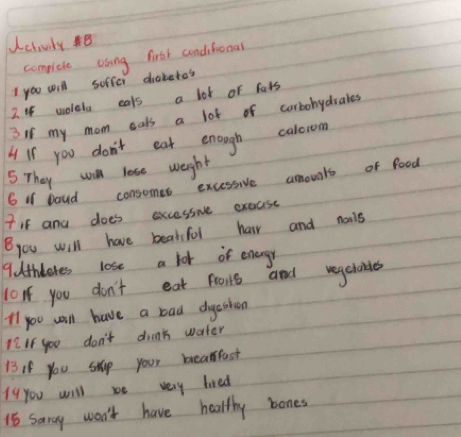 Activity #8
complete using first conditional
1 you will soffer diabetes
2 if eats a lot of fats
3 if my mom eats a lot of carbohydrates
4 If you don't eat enough calciom
5 They will lose weight
6 if David consumes excessive amounts of food
7 if ana does excessive exercise
8 you will have beatiful hair and nails
9 Athletes lose a lot of energy
10 if you don't eat froits and vegetables
11 you will have a bad digestion
12 if you don't drink water
13 if you skip your breakfast
14 you will be very tired
15 Saray won't have healthy bones